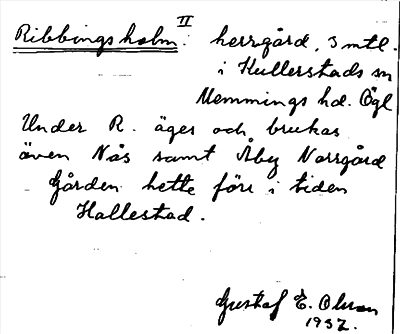 Ribbingsholm. II herrgård, 3 mtl.
i Kullerstads sn
Memmings hd. Ögl
Under R. äger och brukas
även Näs samt Åby Norrgård
Gården hette förr i tiden
Hallestad.
Gustaf E. Olsson
1932.